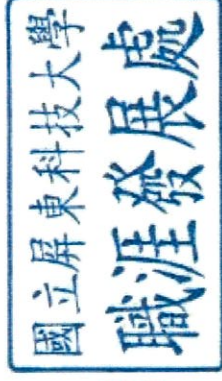 國立屏東科技大學
職涯發展處